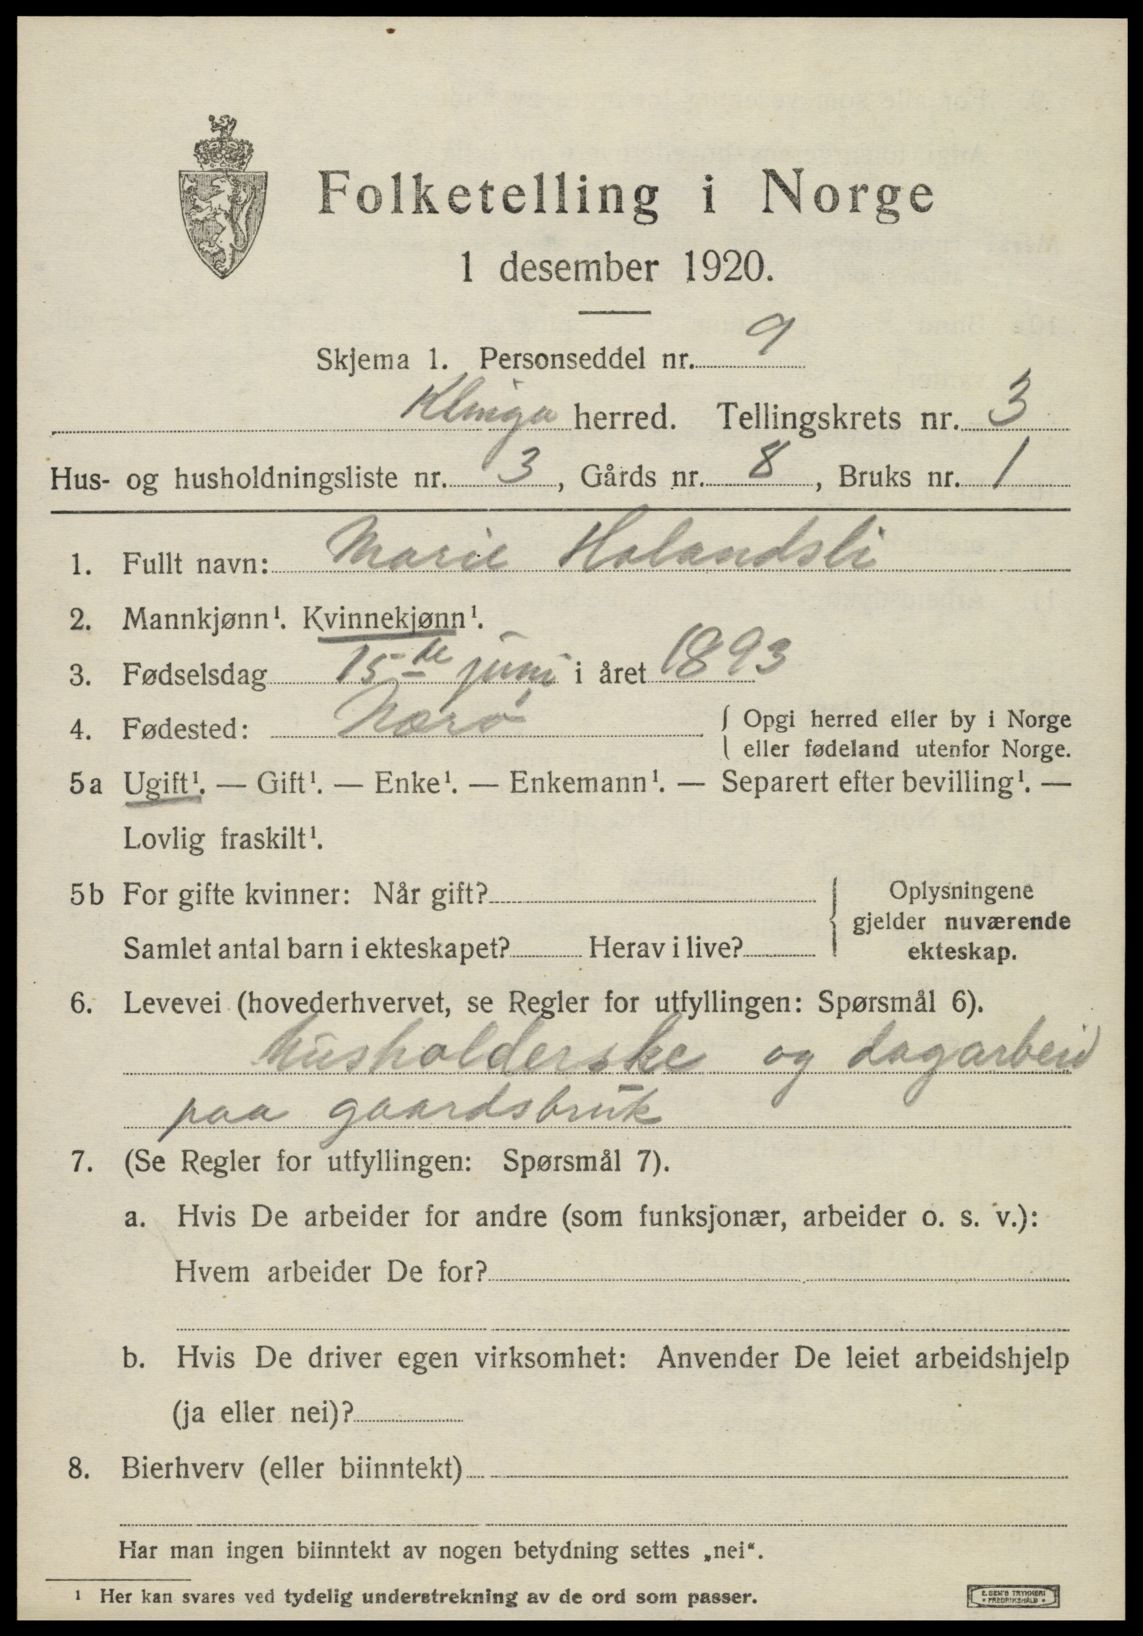 Folketelling i Norge
1 desember 1920.
Skjema 1. Personseddel nr. 9
Klinga herred. Tellingskrets nr. 3
Hus- og husholdningsliste nr. 3, Gårds nr. 8, Bruks nr. 1
1. Fullt navn: Marie Holandsli
2. Mannkjønn¹. Kvinnekjønn¹.
3. Fødselsdag 15-de juni i året 1893
4. Fødested: Nærø { Opgi herred eller by i Norge
eller fødeland utenfor Norge.
5a Ugift¹. — Gift¹. — Enke¹. — Enkemann¹. — Separert efter bevilling¹. —
Lovlig fraskilt¹.
5b For gifte kvinner: Når gift? { Oplysningene
gjelder nuværende
Samlet antal barn i ekteskapet? Herav i live? ekteskap.
6. Levevei (hovederhvervet, se Regler for utfyllingen: Spørsmål 6).
husholderske og dagarbeid
paa gaardsbruk
7. (Se Regler for utfyllingen: Spørsmål 7).
a. Hvis De arbeider for andre (som funksjonær, arbeider o. s. v.):
Hvem arbeider De for?
b. Hvis De driver egen virksomhet: Anvender De leiet arbeidshjelp
(ja eller nei)?
8. Bierhverv (eller biinntekt)
Har man ingen biinntekt av nogen betydning settes „nei“.
¹ Her kan svares ved tydelig understrekning av de ord som passer.
E. SEM'S TRYKKERI
• FREDRIKSHALD •